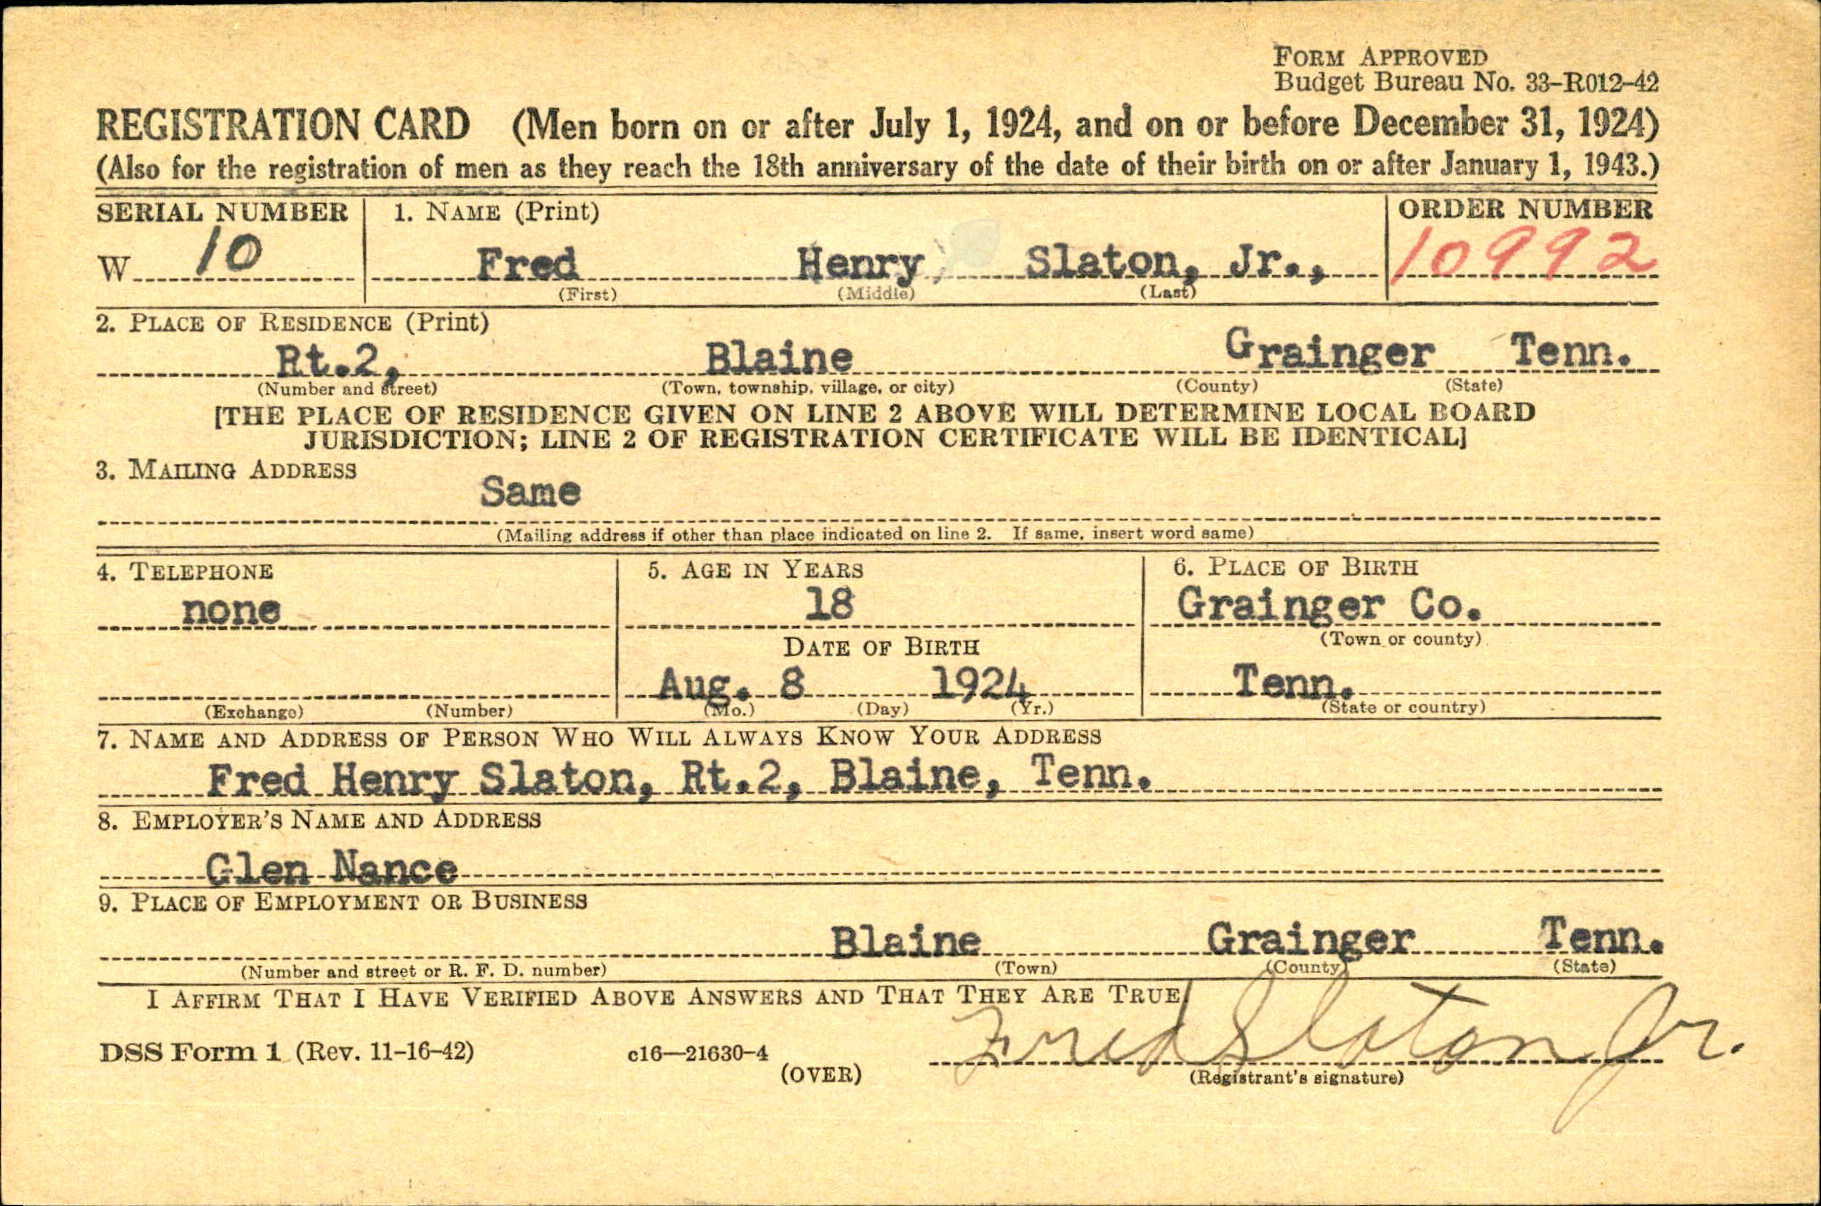 FORM APPROVED
Budget Bureau No. 33-R012-42
REGISTRATION CARD (Men born on or after July 1, 1924, and on or before December 31, 1924)
(Also for the registration of men as they reach the 18th anniversary of the date of their birth on or after January 1, 1943.)
SERIAL NUMBER 1. NAME (Print) ORDER NUMBER
W 10 Fred Henry, Slaton, Jr., 10992
(First) (Middle) (Last)
2. PLACE OF RESIDENCE (Print)
Rt.2, Blaine Grainger Tenn.
(Number and street) (Town, township, village, or city) (County) (State)
[THE PLACE OF RESIDENCE GIVEN ON LINE 2 ABOVE WILL DETERMINE LOCAL BOARD
JURISDICTION; LINE 2 OF REGISTRATION CERTIFICATE WILL BE IDENTICAL]
3. MAILING ADDRESS
Same
(Mailing address if other than place indicated on line 2. If same, insert word same)
4. TELEPHONE 5. AGE IN YEARS 6. PLACE OF BIRTH
none 18 Grainger Co.
DATE OF BIRTH (Town or county)
Aug. 8 1924 Tenn.
(Exchange) (Number) (Mo.) (Day) (Yr.) (State or country)
7. NAME AND ADDRESS OF PERSON WHO WILL ALWAYS KNOW YOUR ADDRESS
Fred Henry Slaton, Rt.2, Blaine, Tenn.
8. EMPLOYER'S NAME AND ADDRESS
Glen Nance
9. PLACE OF EMPLOYMENT OR BUSINESS
Blaine Grainger Tenn.
(Number and street or R. F. D. number) (Town) (County) (State)
I AFFIRM THAT I HAVE VERIFIED ABOVE ANSWERS AND THAT THEY ARE TRUE.
DSS Form 1 (Rev. 11-16-42) c16—21630-4 Fred Slaton Jr.
(OVER) (Registrant's signature)